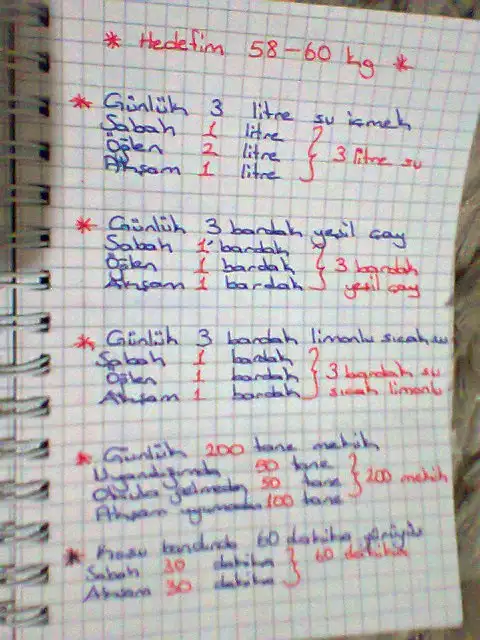 * Hedefim 58-60 kg *
* Günlük 3 litre su içmek
Sabah 1 litre
Öğlen 2 litre } 3 litre su
Akşam 1 litre
* Günlük 3 bardak yeşil çay
Sabah 1 bardak
Öğlen 1 bardak } 3 bardak
Akşam 1 bardak yeşil çay
* Günlük 3 bardak limonlu sıcak su
Sabah 1 bardak
Öğlen 1 bardak } 3 bardak su
Akşam 1 bardak sıcak limonlu
* Günlük 200 tane mekik
Uyandığımda 50 tane
50 tane } 200 mekik
Akşam uyumadan 100 tane
* Koşu bandında 60 dakika yürüyüş
Sabah 30 dakika } 60 dakika
Akşam 30 dakika